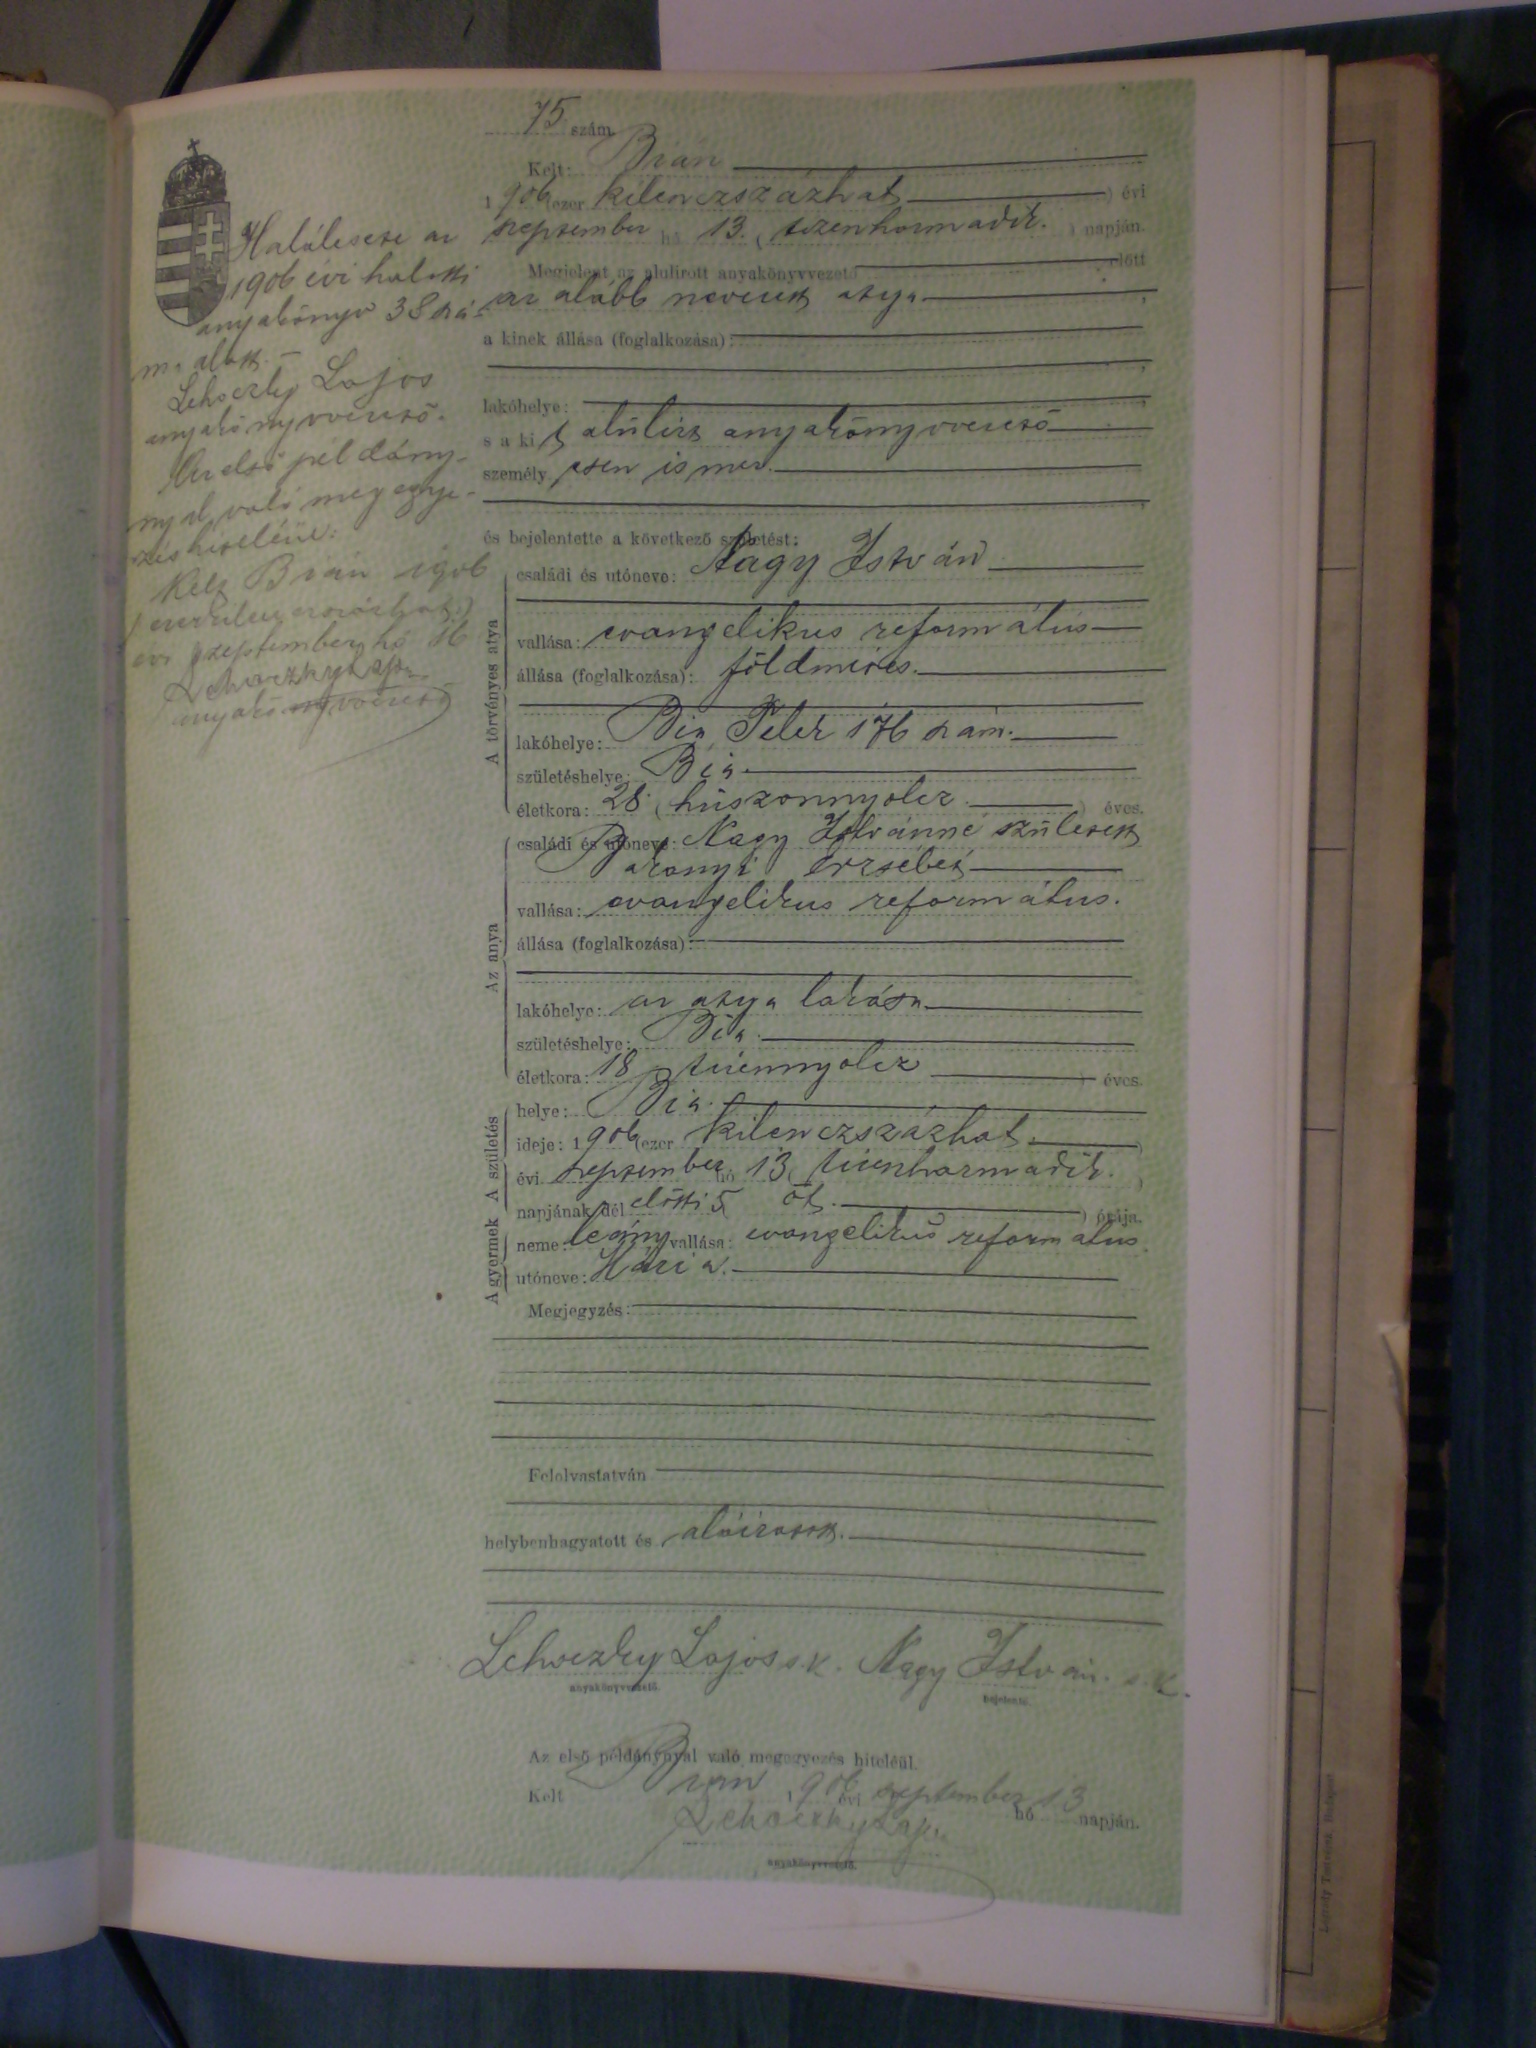 75 szám.
Kelt: Bián
1906 (ezer kilenczszázhat) évi
szeptember hó 13. (tizenharmadik.) napján.
Megjelent az alulirott anyakönyvvezető előtt
az alább nevezett atya
a kinek állása (foglalkozása):
lakóhelye:
s a kit alúlirt anyakönyvvezető
személyesen ismer.
és bejelentette a következő születést:
A törvényes atya
családi és utóneve: Nagy István
vallása: evangelikus református
állása (foglalkozása): földmíves.
lakóhelye: Bia, 176 szám.
születéshelye: Bia
életkora: 28 (húszonnyolcz) éves.
Az anya
családi és utóneve: Nagy Istvánné született
Erzsébet
vallása: evangelikus református.
állása (foglalkozása):
lakóhelye: az atya lakása
születéshelye: Bia.
életkora: 18 (tizennyolcz) éves.
A születés
helye: Bia.
ideje: 1906 (ezer kilenczszázhat.)
évi szeptember hó 13 (tizenharmadik.)
napjának dél előtti 5 (öt.) órája.
A gyermek
neme: leány vallása: evangelikus református
utóneve: Mária.
Megjegyzés:
Felolvastatván
helybenhagyatott és aláiratott.
Lehoczky Lajos s.k. Nagy István s.k.
anyakönyvvezető. bejelentő.
Az első példánynyal való megegyezés hiteléül.
Kelt Bián 1906 évi szeptember hó 13 napján.
Lehoczky Lajos
anyakönyvvezető.
Halálesete az
1906 évi halotti
anyakönyv 38 szá-
m. alatt.
Lehoczky Lajos
anyakönyvvezető.
Az első példány-
nyal való megegye-
zés hiteléül:
Kelt Bián 1906
(ezerkilenczszázhat)
évi szeptember hó 16
Lehoczky Lajos
anyakönyvvezető